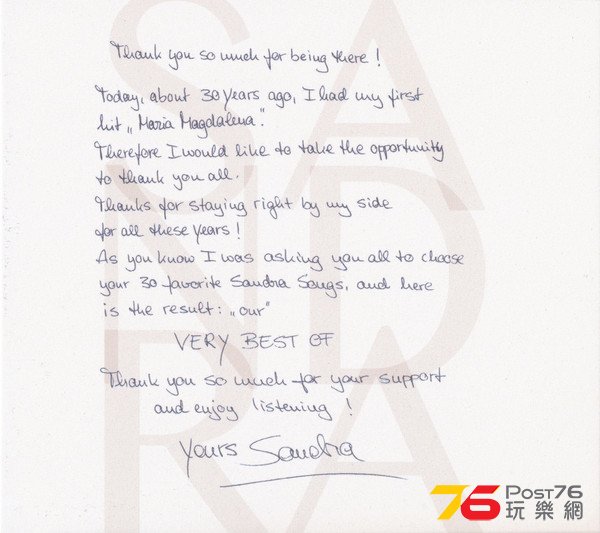 SANDRA
Thank you so much for being there !
Today, about 30 years ago, I had my first
hit „Maria Magdalena“.
Therefore I would like to take the opportunity
to thank you all.
Thanks for staying right by my side
for all these years !
As you know I was asking you all to choose
your 30 favorite Sandra Songs, and here
is the result : „our“
VERY BEST OF
Thank you so much for your support
and enjoy listening !
yours Sandra
76 Post76
玩樂網